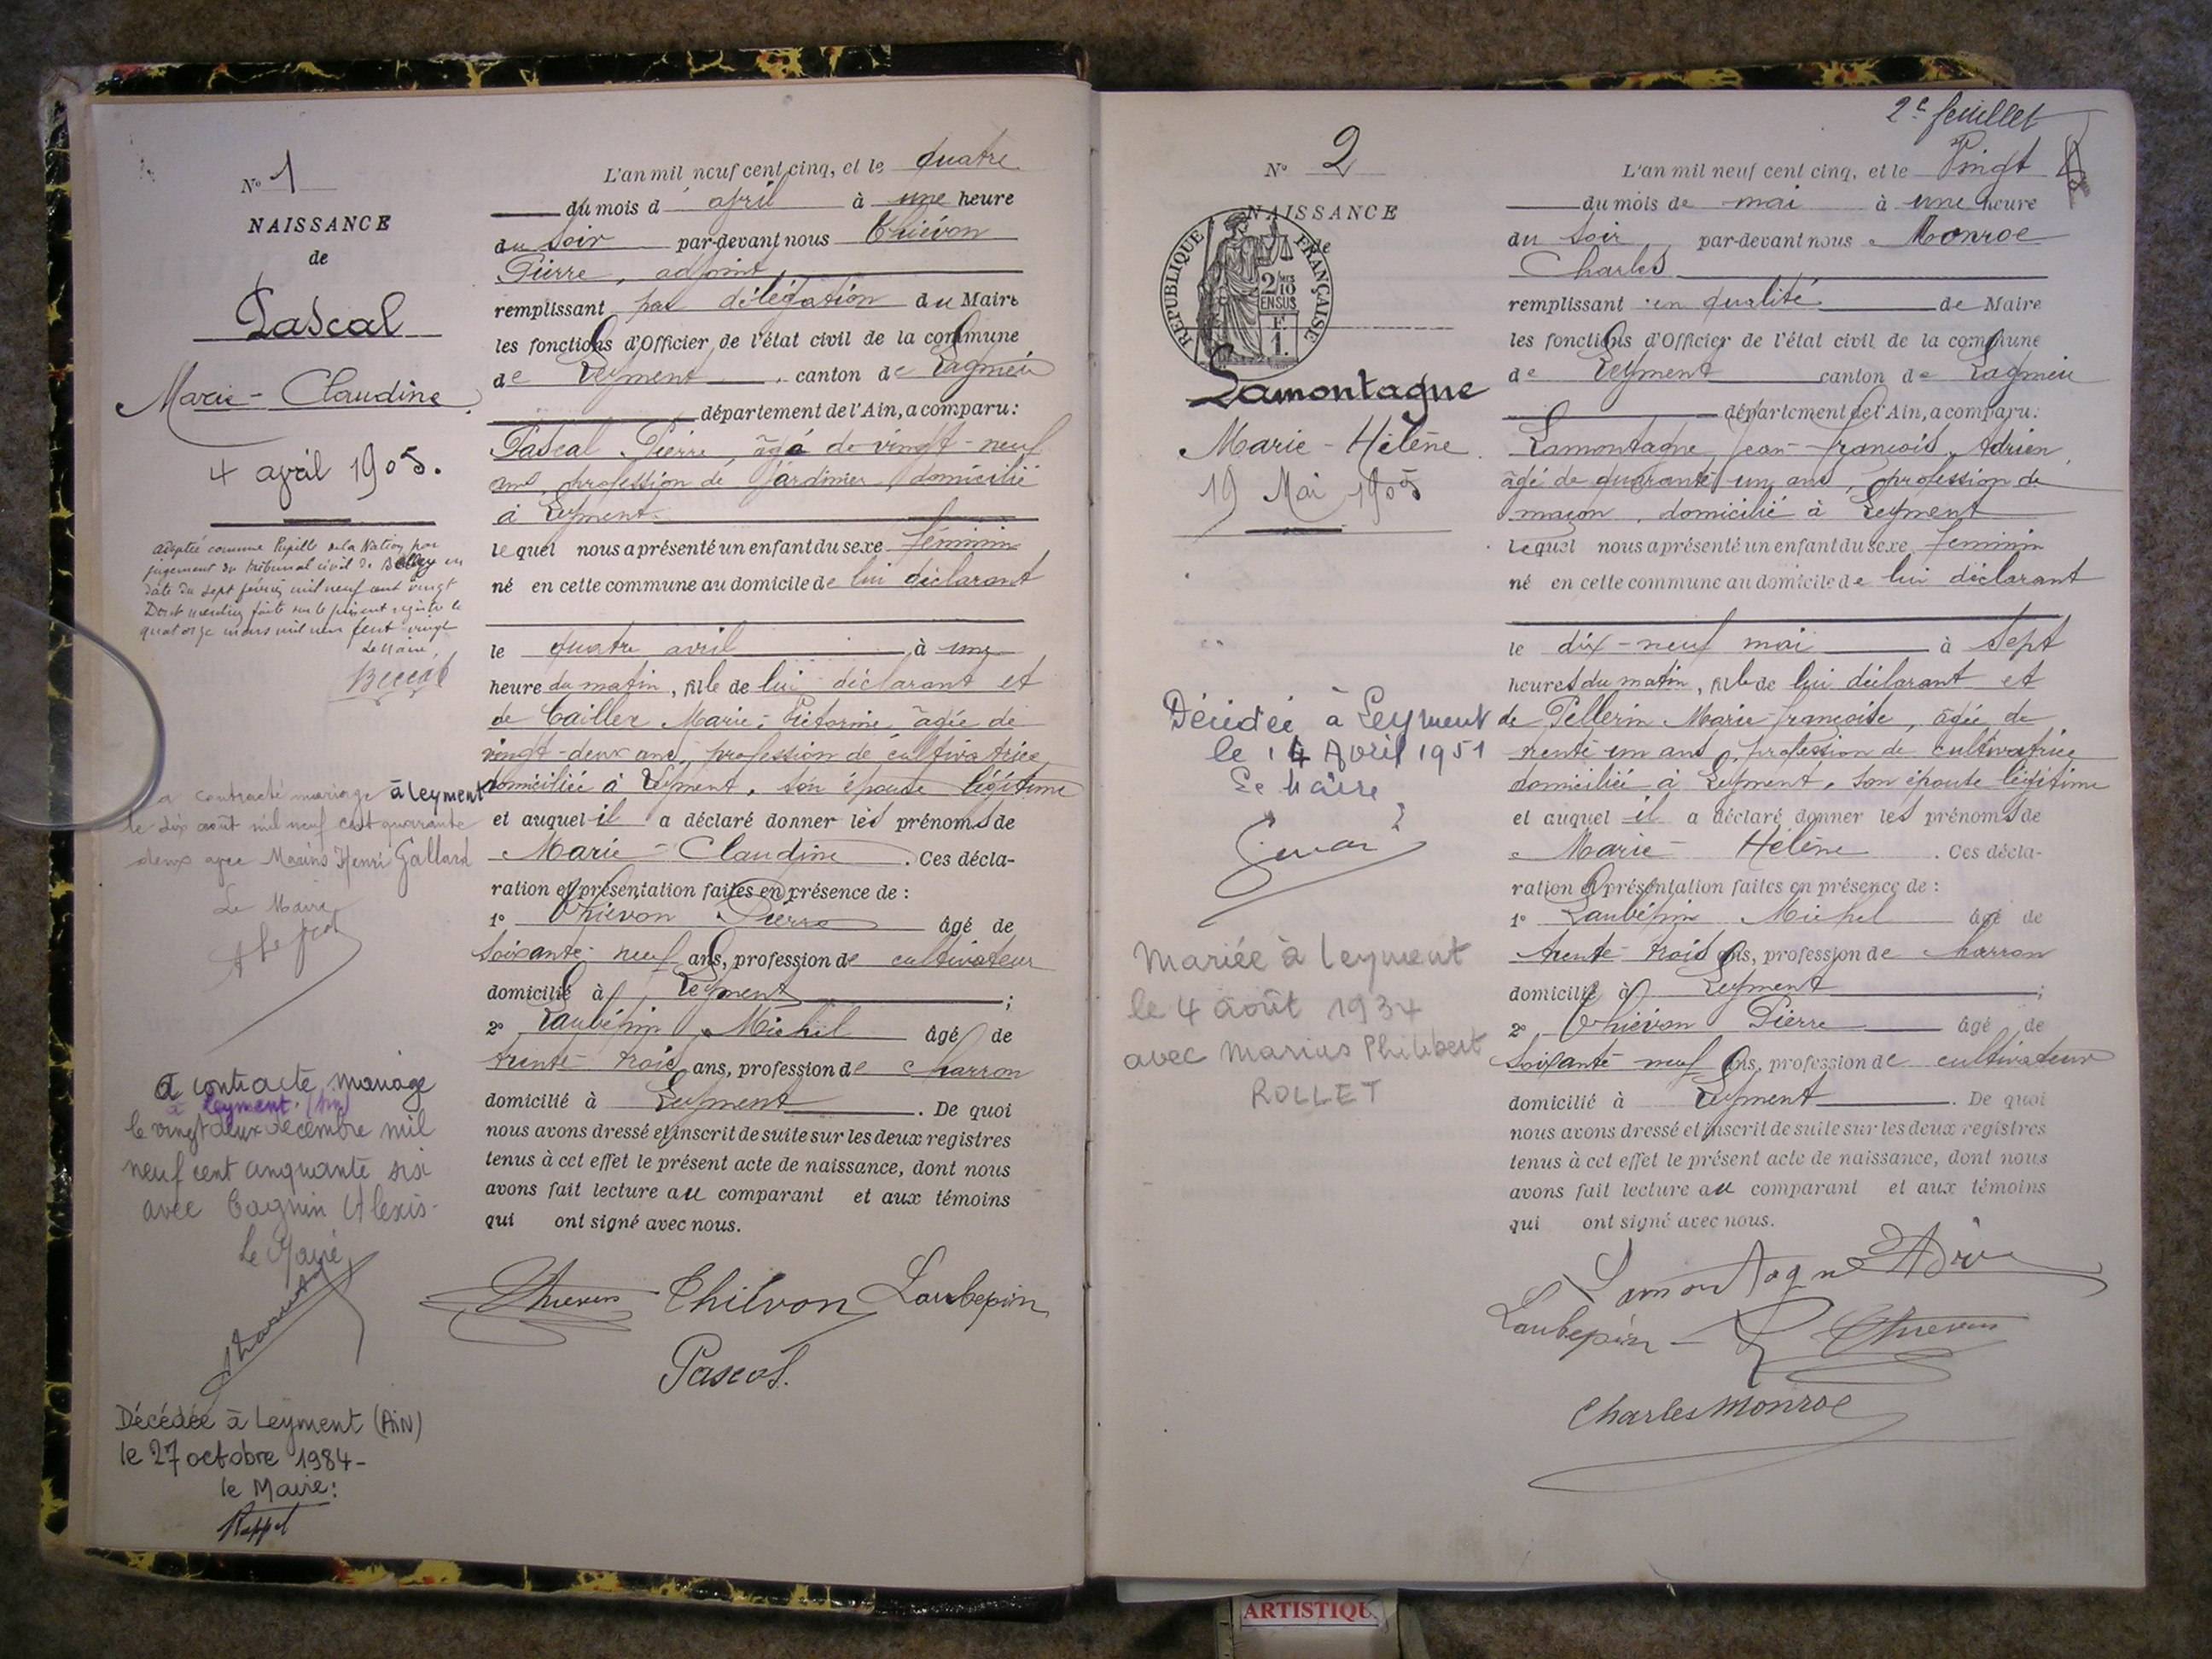 N° 1
NAISSANCE
de
Pascal
Marie-Claudine
4 avril 1905.
adoptée comme Pupille de la Nation par
jugement du tribunal civil de Belley en
date du sept février mil neuf cent vingt
Dont mention faite sur le présent registre le
quatorze mars mil neuf cent vingt
Le Maire,
a contracté mariage à Leyment
le dix août mil neuf cent quarante
deux avec Marius Henri Gallard
Le Maire
a contracté mariage
à Leyment (Ain)
le vingt deux décembre mil
neuf cent cinquante six
avec Cagnin Alexis-
Le Maire
Décédée à Leyment (AiN)
le 27 octobre 1984-
le Maire:
L'an mil neuf cent cinq, et le quatre
du mois d' april à une heure
du soir par-devant nous Thiévon
Pierre, adjoint
remplissant par délégation du Maire
les fonctions d'Officier de l'état civil de la commune
de Leyment canton de Lagnieu
département de l'Ain, a comparu:
Pascal Pierre, âgé de vingt-neuf
ans, profession de jardinier, domicilié
à Leyment.
lequel nous a présenté un enfant du sexe féminin
né en cette commune au domicile de lui déclarant
le quatre avril à une
heure du matin, fille de lui déclarant et
de Marie-Victorine âgée de
vingt-deux ans, profession de cultivatrice
domiciliée à Leyment, son épouse légitime
et auquel il a déclaré donner les prénoms de
Marie-Claudine. Ces décla-
ration et présentation faites en présence de :
1° Thiévon Pierre âgé de
soixante-neuf ans, profession de cultivateur
domicilié à Leyment ;
2° Laubépin Michel âgé de
trente-trois ans, profession de charron
domicilié à Leyment. De quoi
nous avons dressé et inscrit de suite sur les deux registres
tenus à cet effet le présent acte de naissance, dont nous
avons fait lecture au comparant et aux témoins
qui ont signé avec nous.
Thievon Thiévon Laubepin
Pascal.
2e feuillet
N° 2
NAISSANCE
de
REPUBLIQUE FRANÇAISE
2/10 EN SUS
F. 1.
Lamontagne
Marie-Hélène
19 Mai 1905
Décédée à Leyment
le 14 Avril 1951
Le Maire
Mariée à Leyment
le 4 août 1934
avec Marius Philibert
ROLLET
L'an mil neuf cent cinq, et le Vingt
du mois de mai à une heure
du soir par-devant nous Monroe
Charles
remplissant en qualité de Maire
les fonctions d'Officier de l'état civil de la commune
de Leyment canton de Lagnieu
département de l'Ain, a comparu:
Lamontagne Jean-François Adrien
âgé de quarante un ans, profession de
maçon, domicilié à Leyment
lequel nous a présenté un enfant du sexe féminin
né en cette commune au domicile de lui déclarant
le dix-neuf mai à sept
heures du matin, fille de lui déclarant et
de Pellerin Marie-Françoise, âgée de
trente un ans, profession de cultivatrice
domiciliée à Leyment, son épouse légitime
et auquel il a déclaré donner les prénoms de
Marie-Hélène. Ces décla-
ration et présentation faites en présence de :
1° Laubépin Michel âgé de
trente-trois ans, profession de charron
domicilié à Leyment ;
2° Thiévon Pierre âgé de
soixante-neuf ans, profession de cultivateur
domicilié à Leyment. De quoi
nous avons dressé et inscrit de suite sur les deux registres
tenus à cet effet le présent acte de naissance, dont nous
avons fait lecture au comparant et aux témoins
qui ont signé avec nous.
Lamontagne
Laubepin Thievon
Charles Monroe
ARTISTIQU